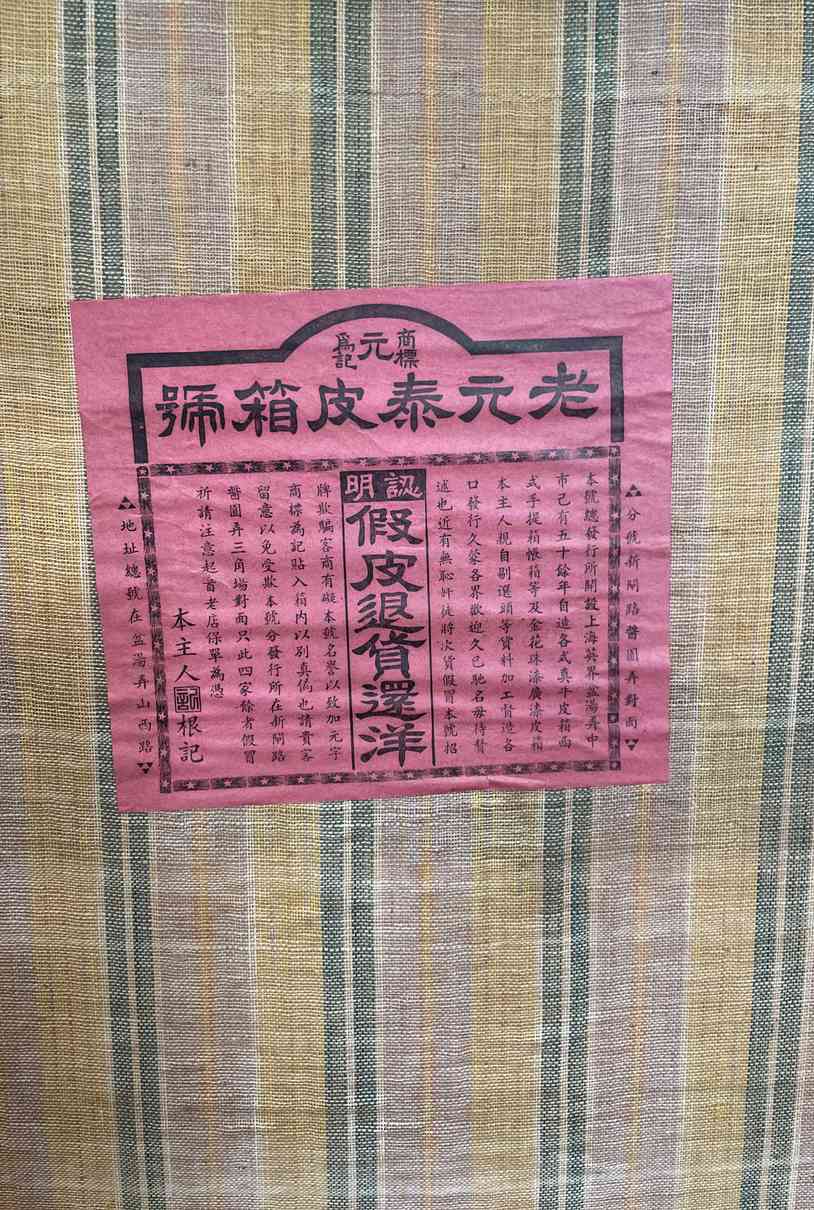 商標
元
為記
老元泰皮箱號
分號新閘路醬園弄對面
本號總發行所開設上海英界盆湯弄中
市已有五十餘年自造各式真牛皮箱西
式手提箱帳箱等及金花珠漆廣漆皮箱
本主人親自剔選頭等資料加工督造各
口發行久蒙各界歡迎久已馳名毋待贅
述也近有無恥奸徒將次貨假冒本號招
認明
假皮退貨還洋
牌欺騙客商有礙本號名譽以致加元字
商標為記貼入箱内以別真偽也請貴客
留意以免受欺本號分發行所在新閘路
醬園弄三角場對面只此四家餘者假冒
祈請注意起首老店保單為憑
本主人
根記
地址總號在盆湯弄山西路